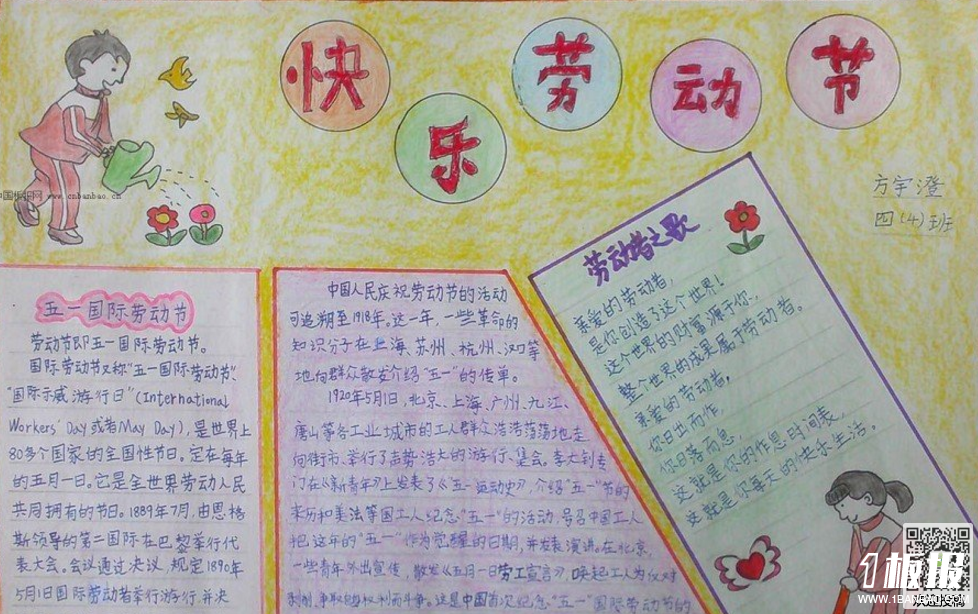 快乐劳动节
方宇澄
四(4)班
www.cnbanbao.cn
五一国际劳动节
劳动节即五一国际劳动节。
国际劳动节又称"五一国际劳动节"、
"国际示威游行日"(International
Workers' Day或者May Day),是世界上
80多个国家的全国性节日。定在每年
的五月一日。它是全世界劳动人民
共同拥有的节日。1889年7月,由恩格
斯领导的第二国际在巴黎举行代
表大会。会议通过决议,规定1890年
5月1日国际劳动者举行游行,并决
中国人民庆祝劳动节的活动
可追溯至1918年。这一年,一些革命的
知识分子在上海、苏州、杭州、汉口等
地向群众散发介绍"五一"的传单。
1920年5月1日,北京、上海、广州、九江、
唐山等各工业城市的工人群众浩浩荡荡地走
向街市、举行了声势浩大的游行、集会。李大钊专
门在《新青年》上发表了《五一运动史》,介绍"五一"节的
来历和美法等国工人纪念"五一"的活动,号召中国工人
把这年的"五一"作为觉醒的日期,并发表演讲。在北京,
一些青年外出宣传,散发《五月一日劳工宣言》,唤起工人为反对
剥削、争取自身权利而斗争。这是中国首次纪念"五一"国际劳动节的
劳动者之歌
亲爱的劳动者,
是你创造了这个世界!
这个世界的财富源于你,
整个世界的成果属于劳动者。
亲爱的劳动者,
你日出而作,
你日落而息,
这就是你的作息时间表,
这就是你每天的快乐生活。
1板报
WWW.1BANBAO.COM